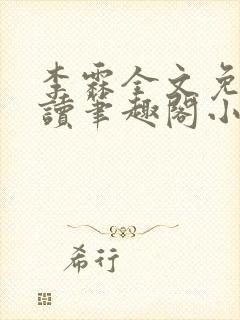 李霖全文免
讀筆趣閣小
希行